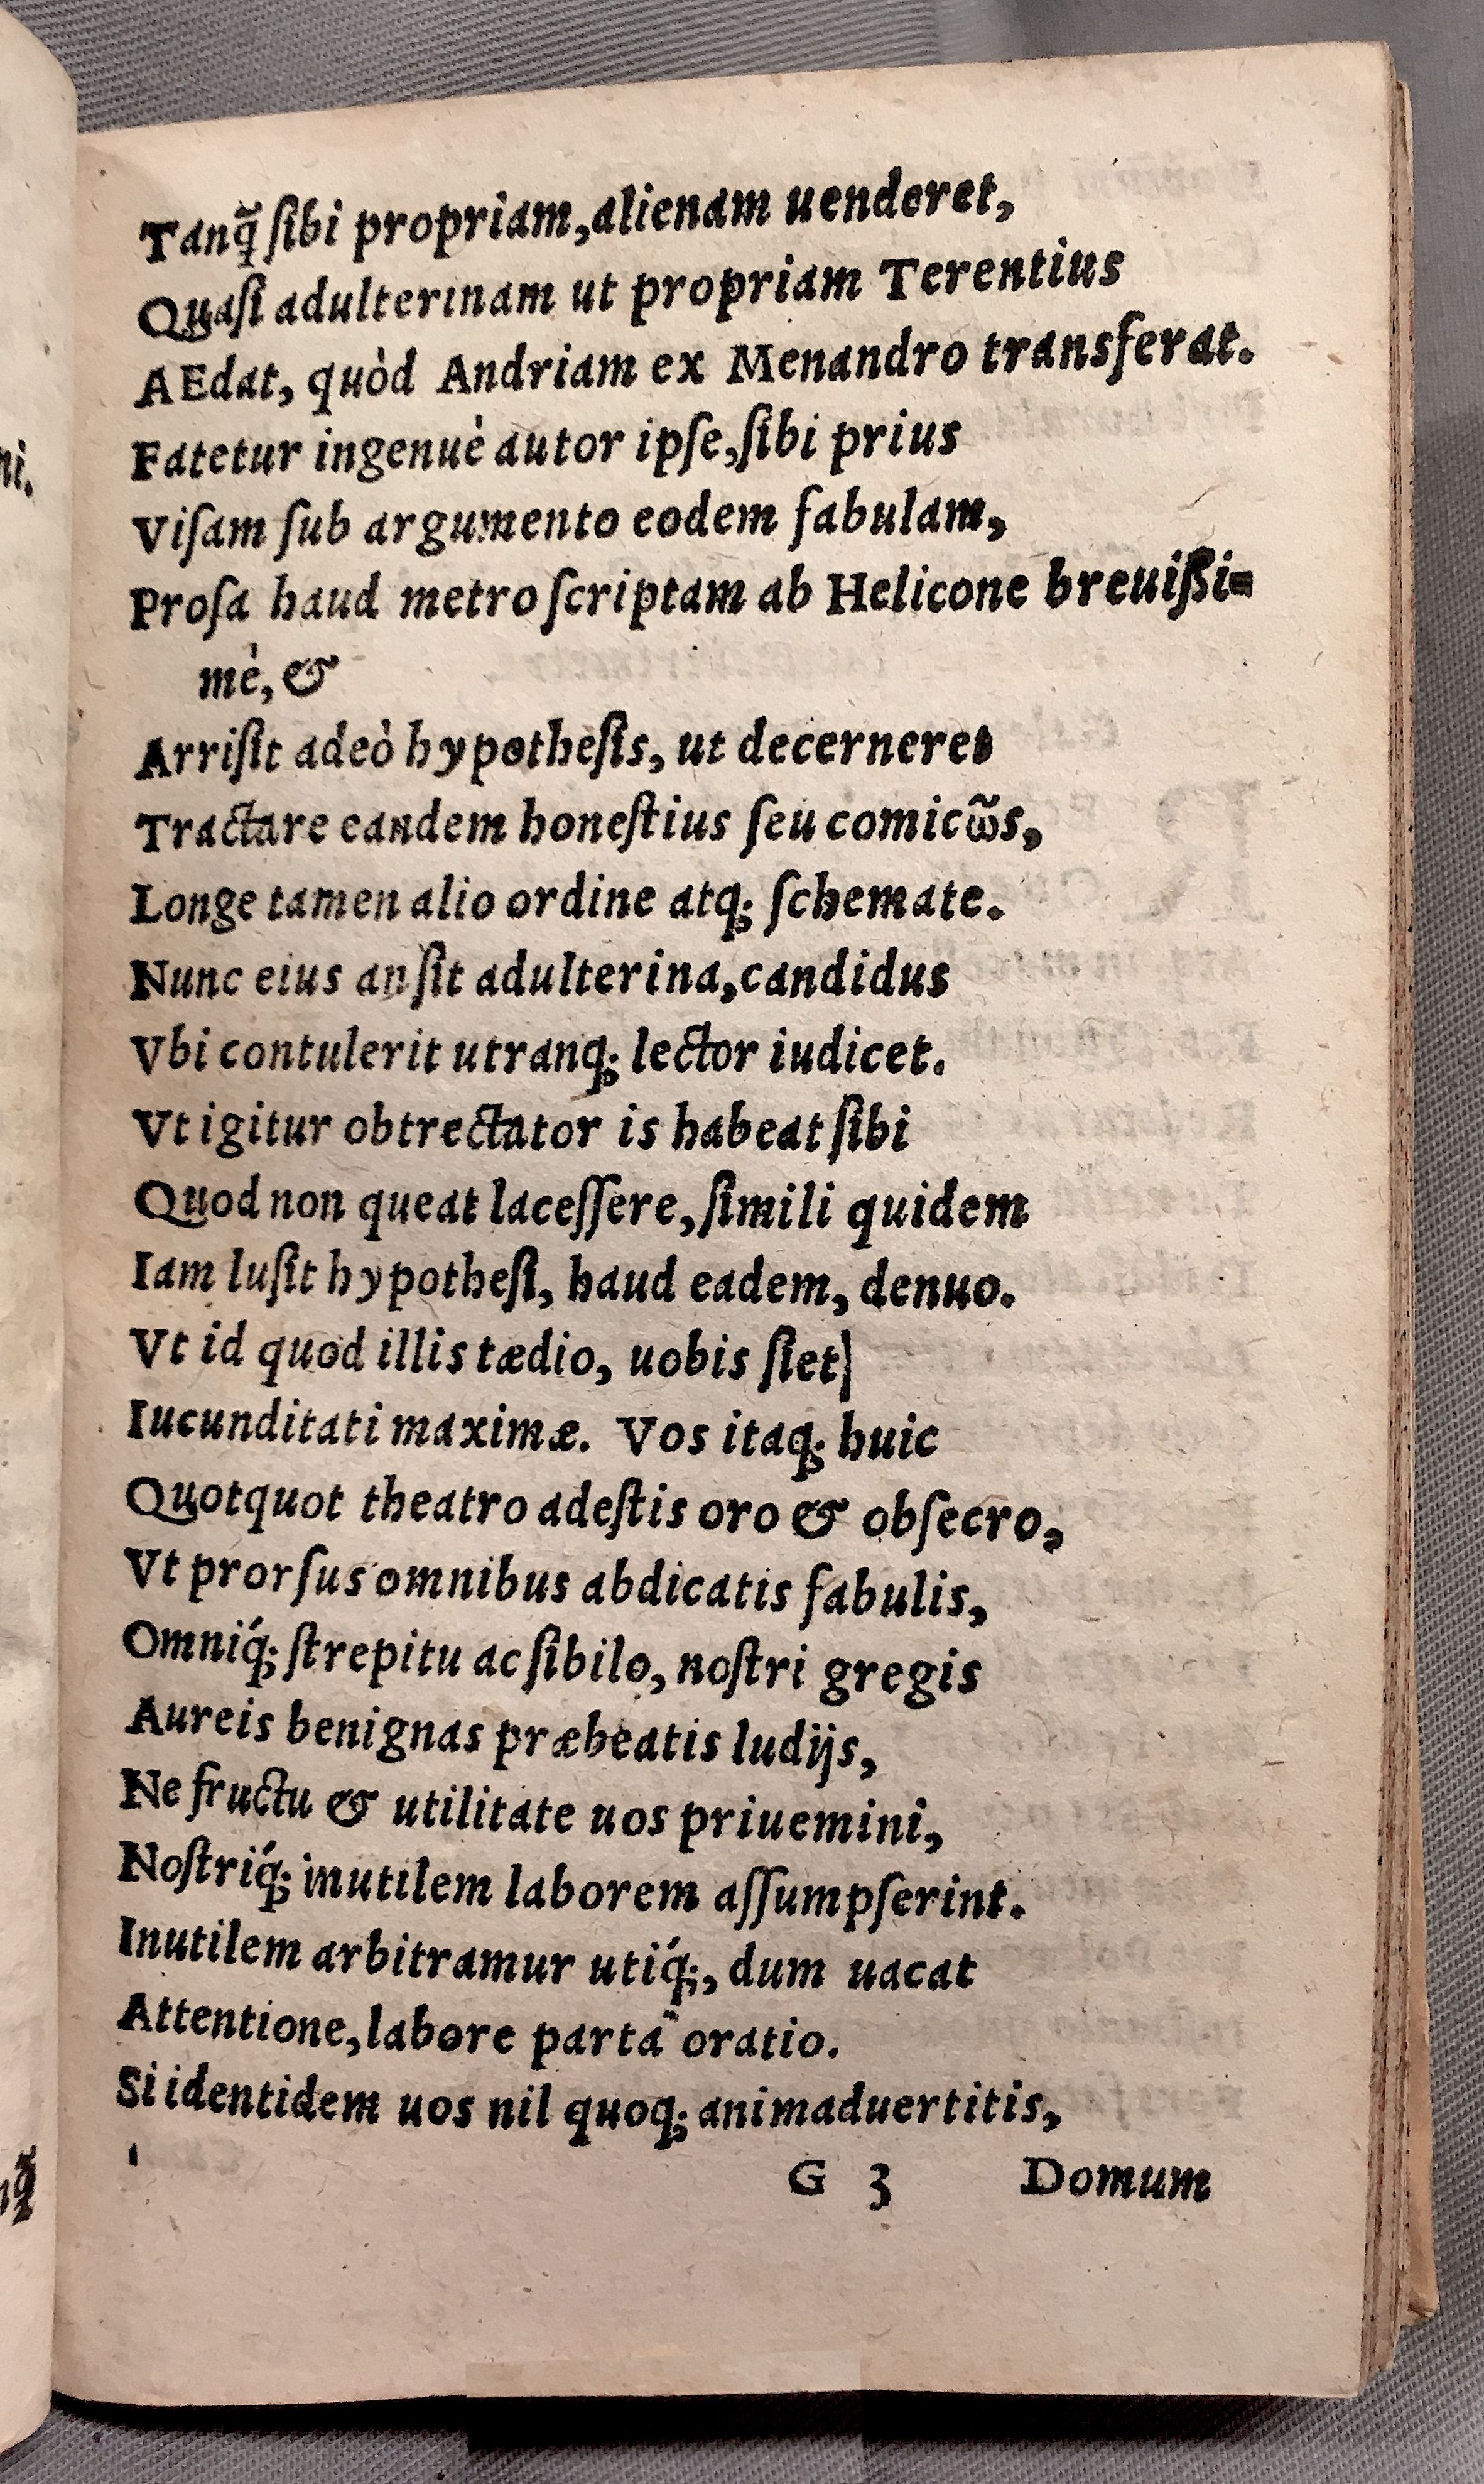 Tanq̃ ſibi propriam, alienam uenderet,
Quaſi adulterinam ut propriam Terentius
AEdat, quòd Andriam ex Menandro transferat.
Fatetur ingenuè autor ipſe, ſibi prius
Viſam ſub argumento eodem fabulam,
Proſa haud metro ſcriptam ab Helicone breuißi=
mè, &
Arriſit adeò hypotheſis, ut decerneret
Tractare eandem honeſtius ſeu comicω̃s,
Longe tamen alio ordine atq; ſchemate.
Nunc eius an ſit adulterina, candidus
Vbi contulerit utranq; lector iudicet.
Vt igitur obtrectator is habeat ſibi
Quod non queat laceſſere, ſimili quidem
Iam luſit hypotheſi, haud eadem, denuo.
Vt id quod illis tædio, uobis ſiet
Iucunditati maximæ. Vos itaq; huic
Quotquot theatro adeſtis oro & obſecro,
Vt prorſus omnibus abdicatis fabulis,
Omniq́; ſtrepitu ac ſibilo, noſtri gregis
Aureis benignas præbeatis ludijs,
Ne fructu & utilitate uos priuemini,
Noſtriq́; inutilem laborem aſſumpſerint.
Inutilem arbitramur utiq́;, dum uacat
Attentione, labore parta oratio.
Si identidem uos nil quoq; animaduertitis,
G 3 Domum